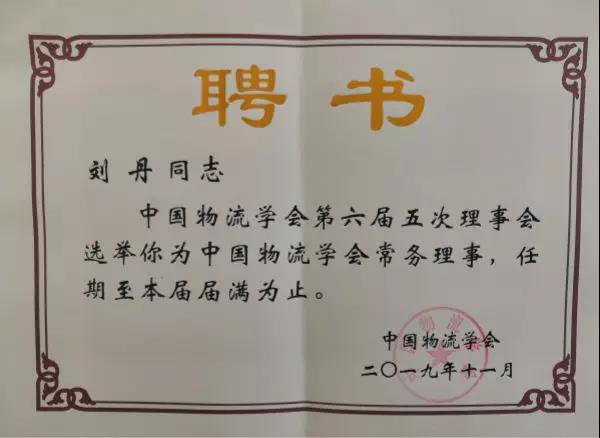 聘书
刘丹同志
中国物流学会第六届五次理事会
选举你为中国物流学会常务理事，任
期至本届届满为止。
中国物流学会
二〇一九年十一月